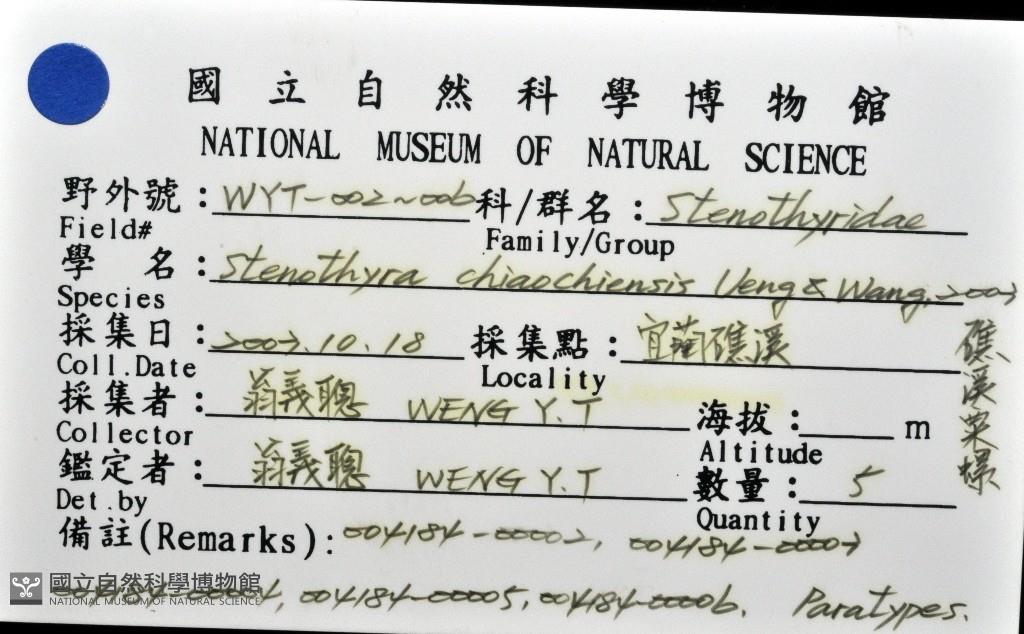 國立自然科學博物館
NATIONAL MUSEUM OF NATURAL SCIENCE
野外號：WYT-002~006 科/群名：Stenothyridae
Field# Family/Group
學 名：Stenothyra chiaochiensis Ueng & Wang, 2003
Species
採集日：2003.10.18 採集點：宜蘭礁溪
Coll.Date Locality
礁溪粟螺
採集者：翁義聰 WENG Y.T 海拔：　m
Collector Altitude
鑑定者：翁義聰 WENG Y.T 數量：5
Det.by Quantity
備註(Remarks)：004184-00002, 004184-00003
004184-00004, 004184-00005, 004184-00006. Paratypes.
國立自然科學博物館
NATIONAL MUSEUM OF NATURAL SCIENCE